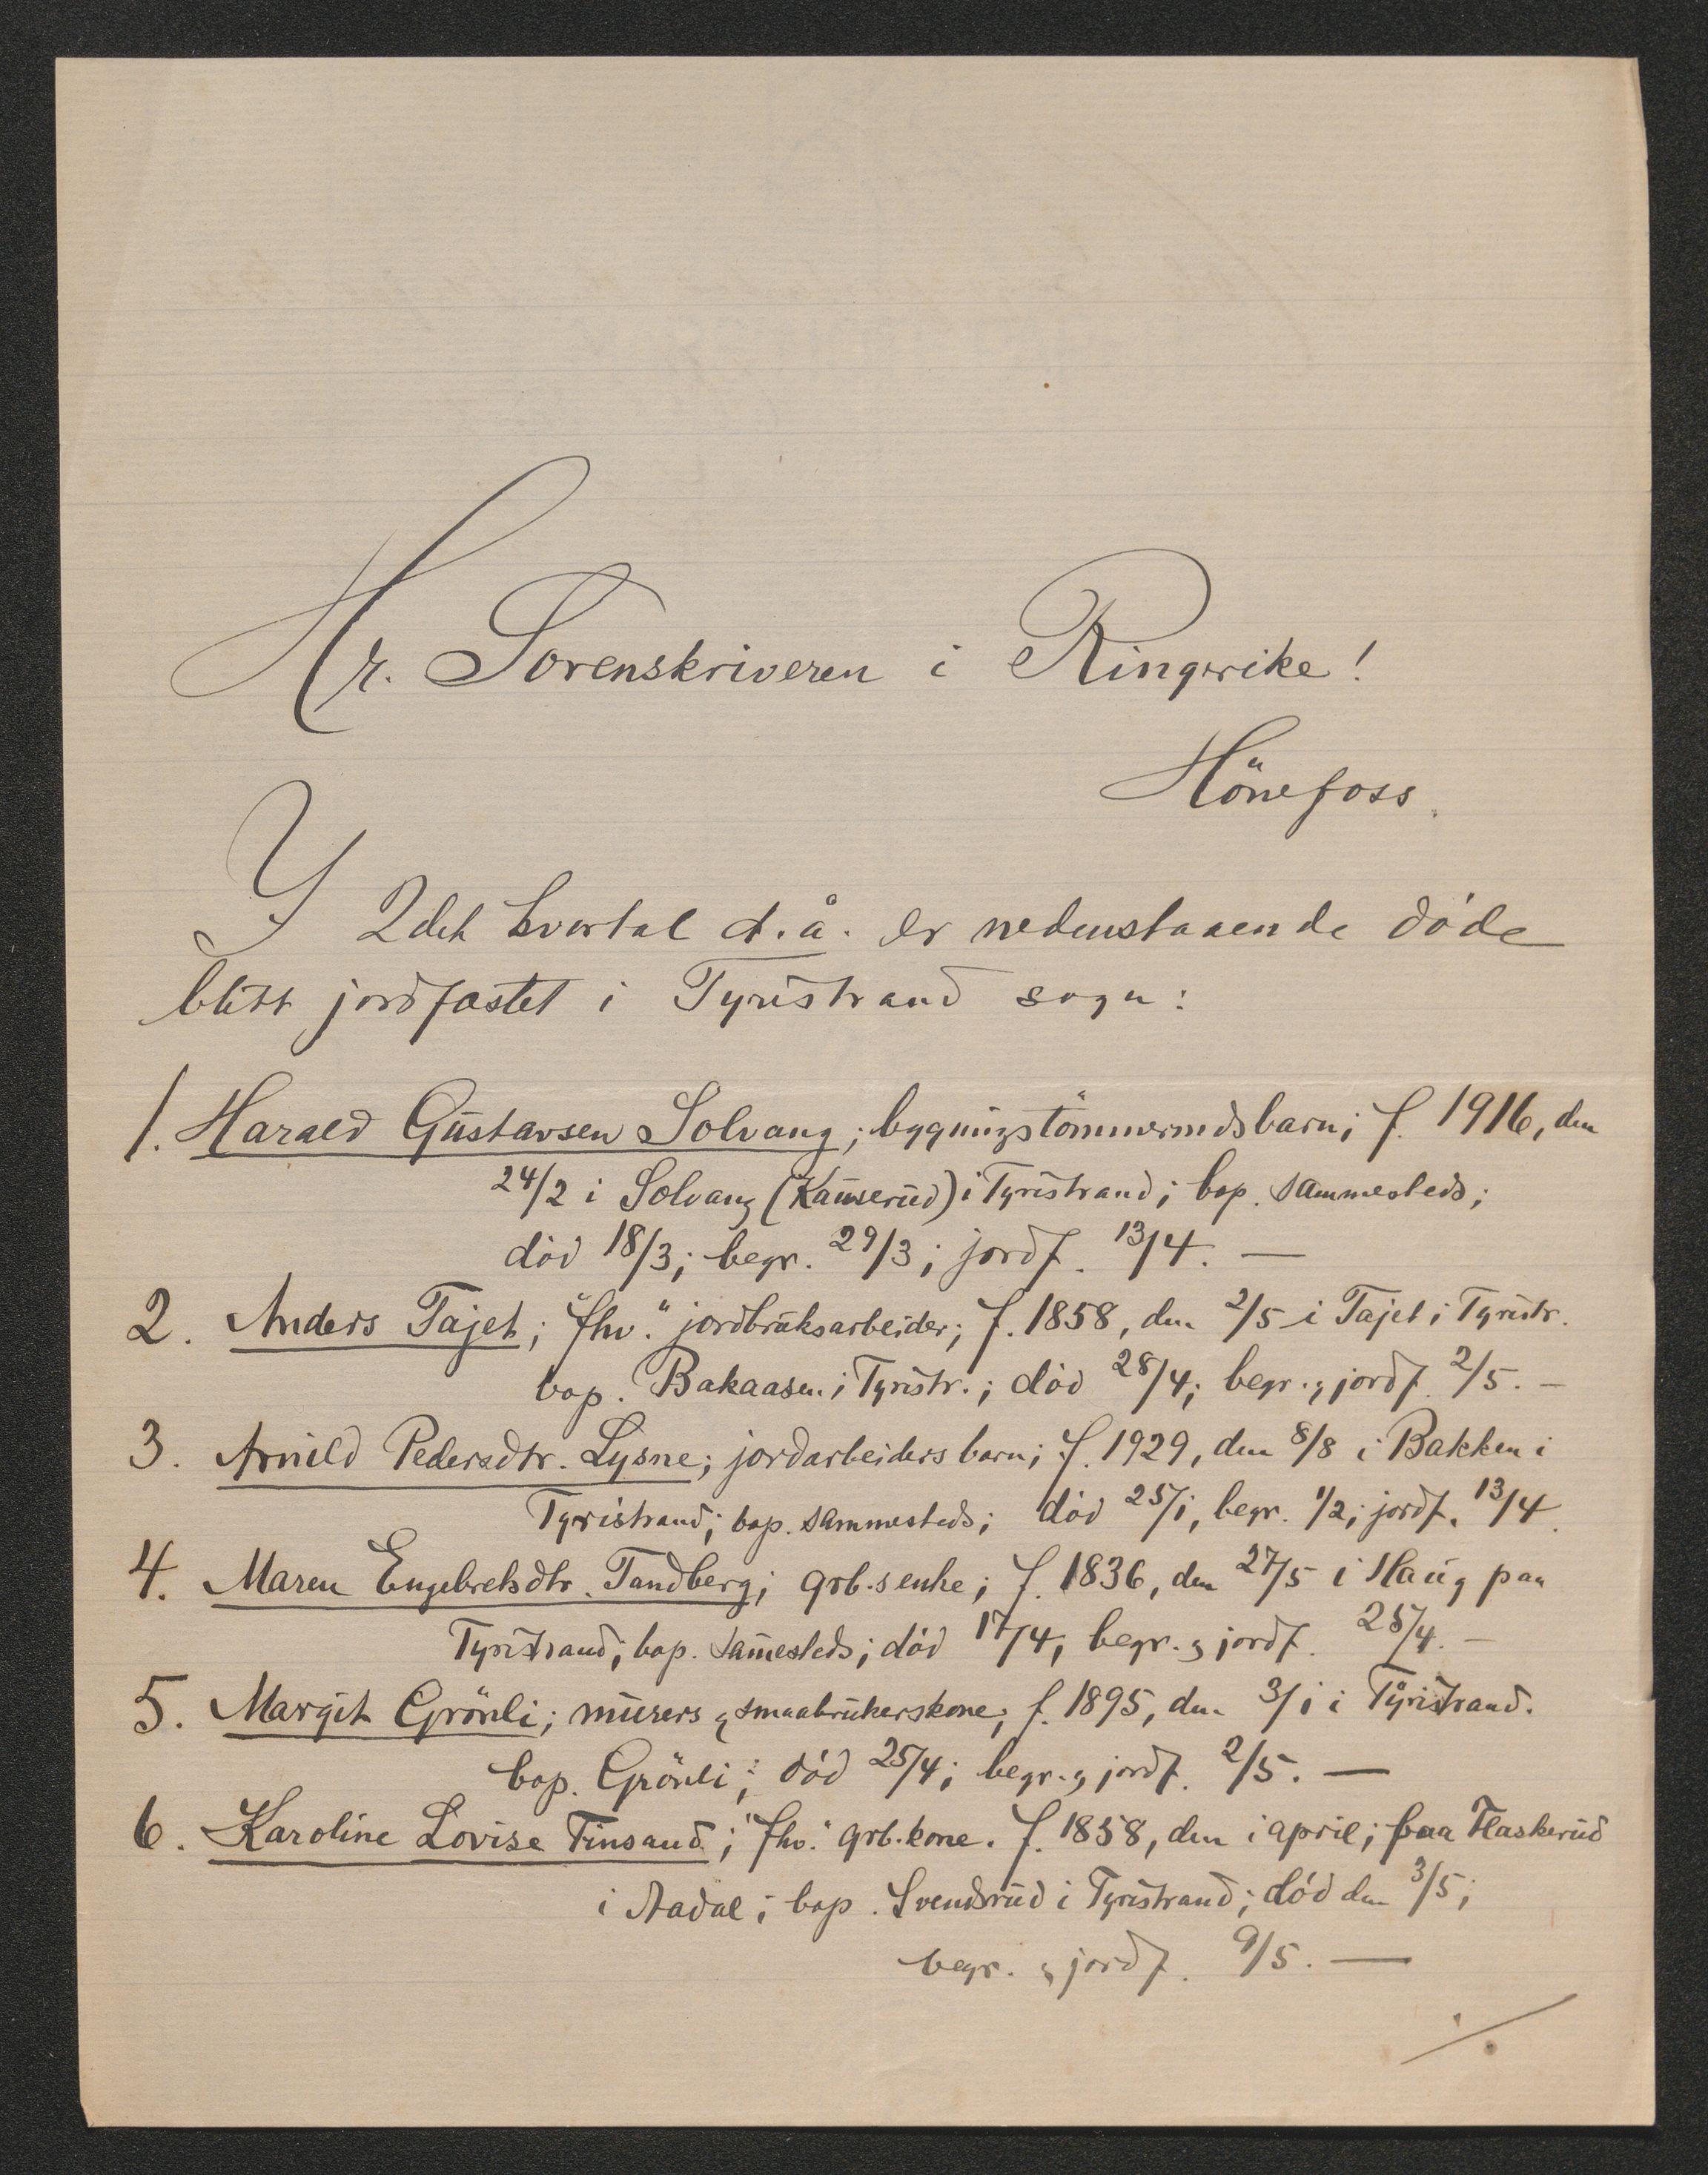 Hr. Sorenskriveren i Ringerike!
Hönefoss.
I 2det kvartal d.å. er nedenstaaende döde
blitt jordfæstet i Tyristrand sogn:
1. Harald Gustavsen Solvang; bygningstömmermdsbarn; f. 1916, den
24/2 i Solvang (Kamserud) i Tyristrand; bop. sammesteds;
död 18/3; begr. 29/3; jordf. 13/4. —
2. Anders Tajet; "fhv." jordbruksarbeider; f. 1858, den 2/5 i Tajet i Tyristr.
bop. Bakaasen i Tyristr.; död 28/4; begr. & jordf. 2/5. —
3. Arnild Pedersdtr. Lysne; jordarbeidersbarn; f. 1929, den 8/8 i Bakken i
Tyristrand; bop. sammesteds; död 25/1, begr. 1/2; jordf. 13/4.
4. Maren Engebretsdtr. Tandberg; grb.s enke; f. 1836, den 27/5 i Haug paa
Tyristrand; bop. sam̄esteds; död 17/4, begr. & jordf. 25/4. —
5. Margit Grönli; murers & smaabrukerskone; f. 1895, den 3/1 i Tyristrand.
bop. Grönli; död 25/4; begr. & jordf. 2/5. —
6. Karoline Lovise Finsand; "fhv." grb.kone. f. 1858, den i april; paa Flaskerud
i Aadal; bop. Svendsrud i Tyristrand; död den 3/5;
begr. & jordf. 9/5. —
./.